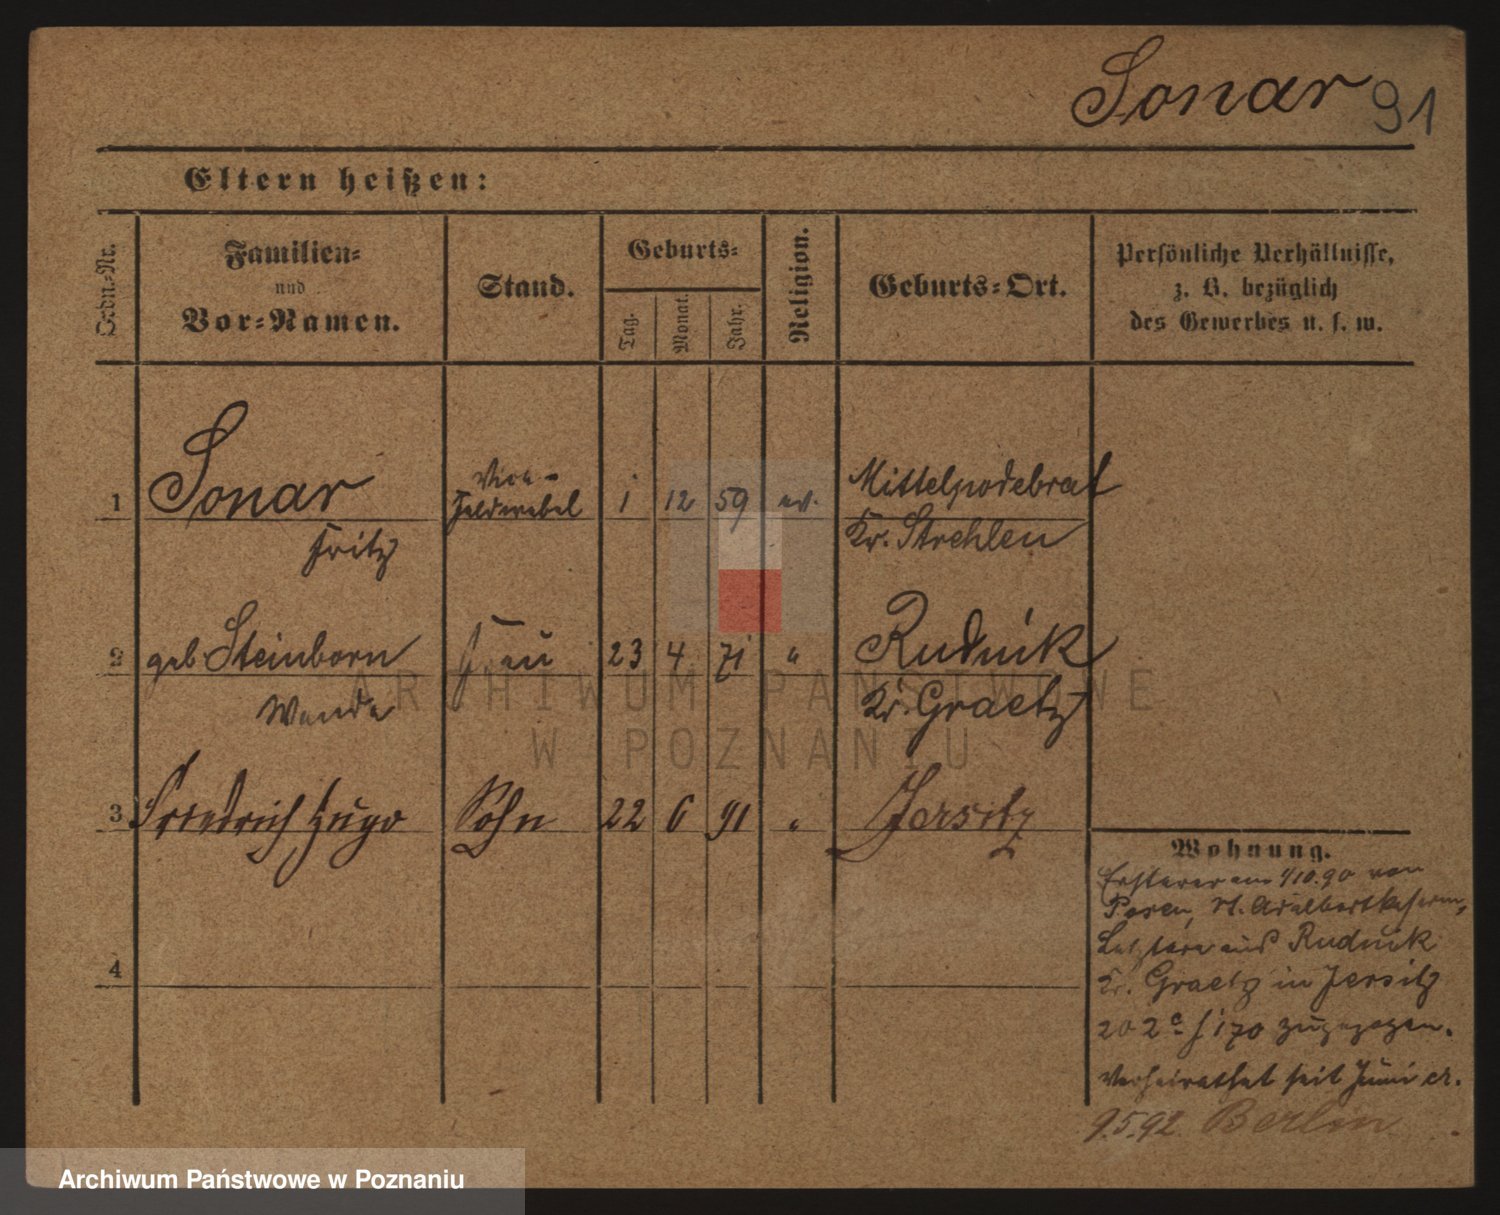 Sonar 91
Eltern heißen:
Ordn.-Nr.
Familien-
und
Vor-Namen.
Stand.
Geburts-
Tag.
Monat.
Jahr.
Religion.
Geburts-Ort.
Persönliche Verhältnisse,
z. B. bezüglich
des Gewerbes u. s. w.
Vice-
1 Sonar Feldwebel 1 12 59 ev. Mittelpodebrat
Fritz Kr. Strehlen
2 geb Steinborn Frau 23 4 71 " Rudnik
Wanda Kr. Graetz
3 Friedrich Hugo Sohn 22 6 91 " Jersitz
4
Wohnung.
Ersterer am 1/10.90 von
Posen, St. Adalbertkaserne,
Letztere aus Rudnik
Kr. Graetz in Jersitz
202c zugezogen.
Verheirathet seit Juni cr.
9.5.92. Berlin
ARCHIWUM PAŃSTWOWE
W POZNANIU
Archiwum Państwowe w Poznaniu